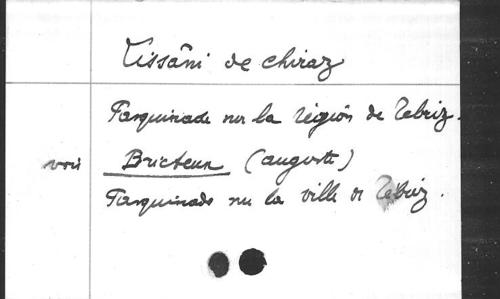 Lissâni de chiraz
Pasquinade sur la région de Tebriz.
voir Bricteux (auguste)
Pasquinade sur la ville de Tebriz.